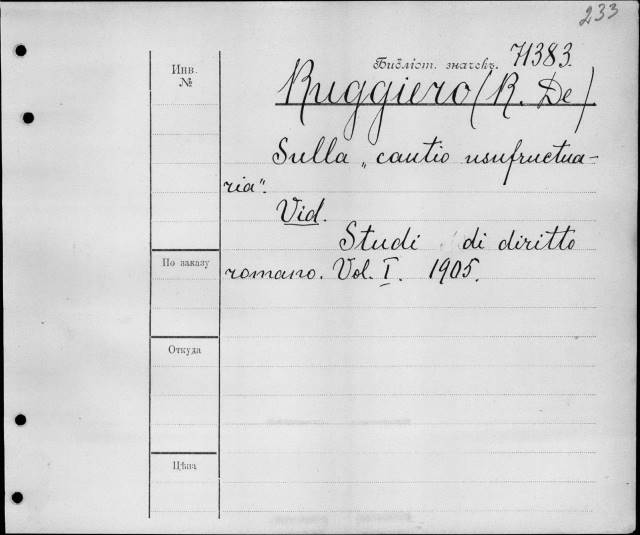 233
Инв. №
Библіот. значекъ. 71383.
Ruggiero (R. De)
Sulla „cautio usufructua-
ria".
Vid.
Studi di diritto
По заказу
romano. Vol. I. 1905.
Откуда
Цѣна